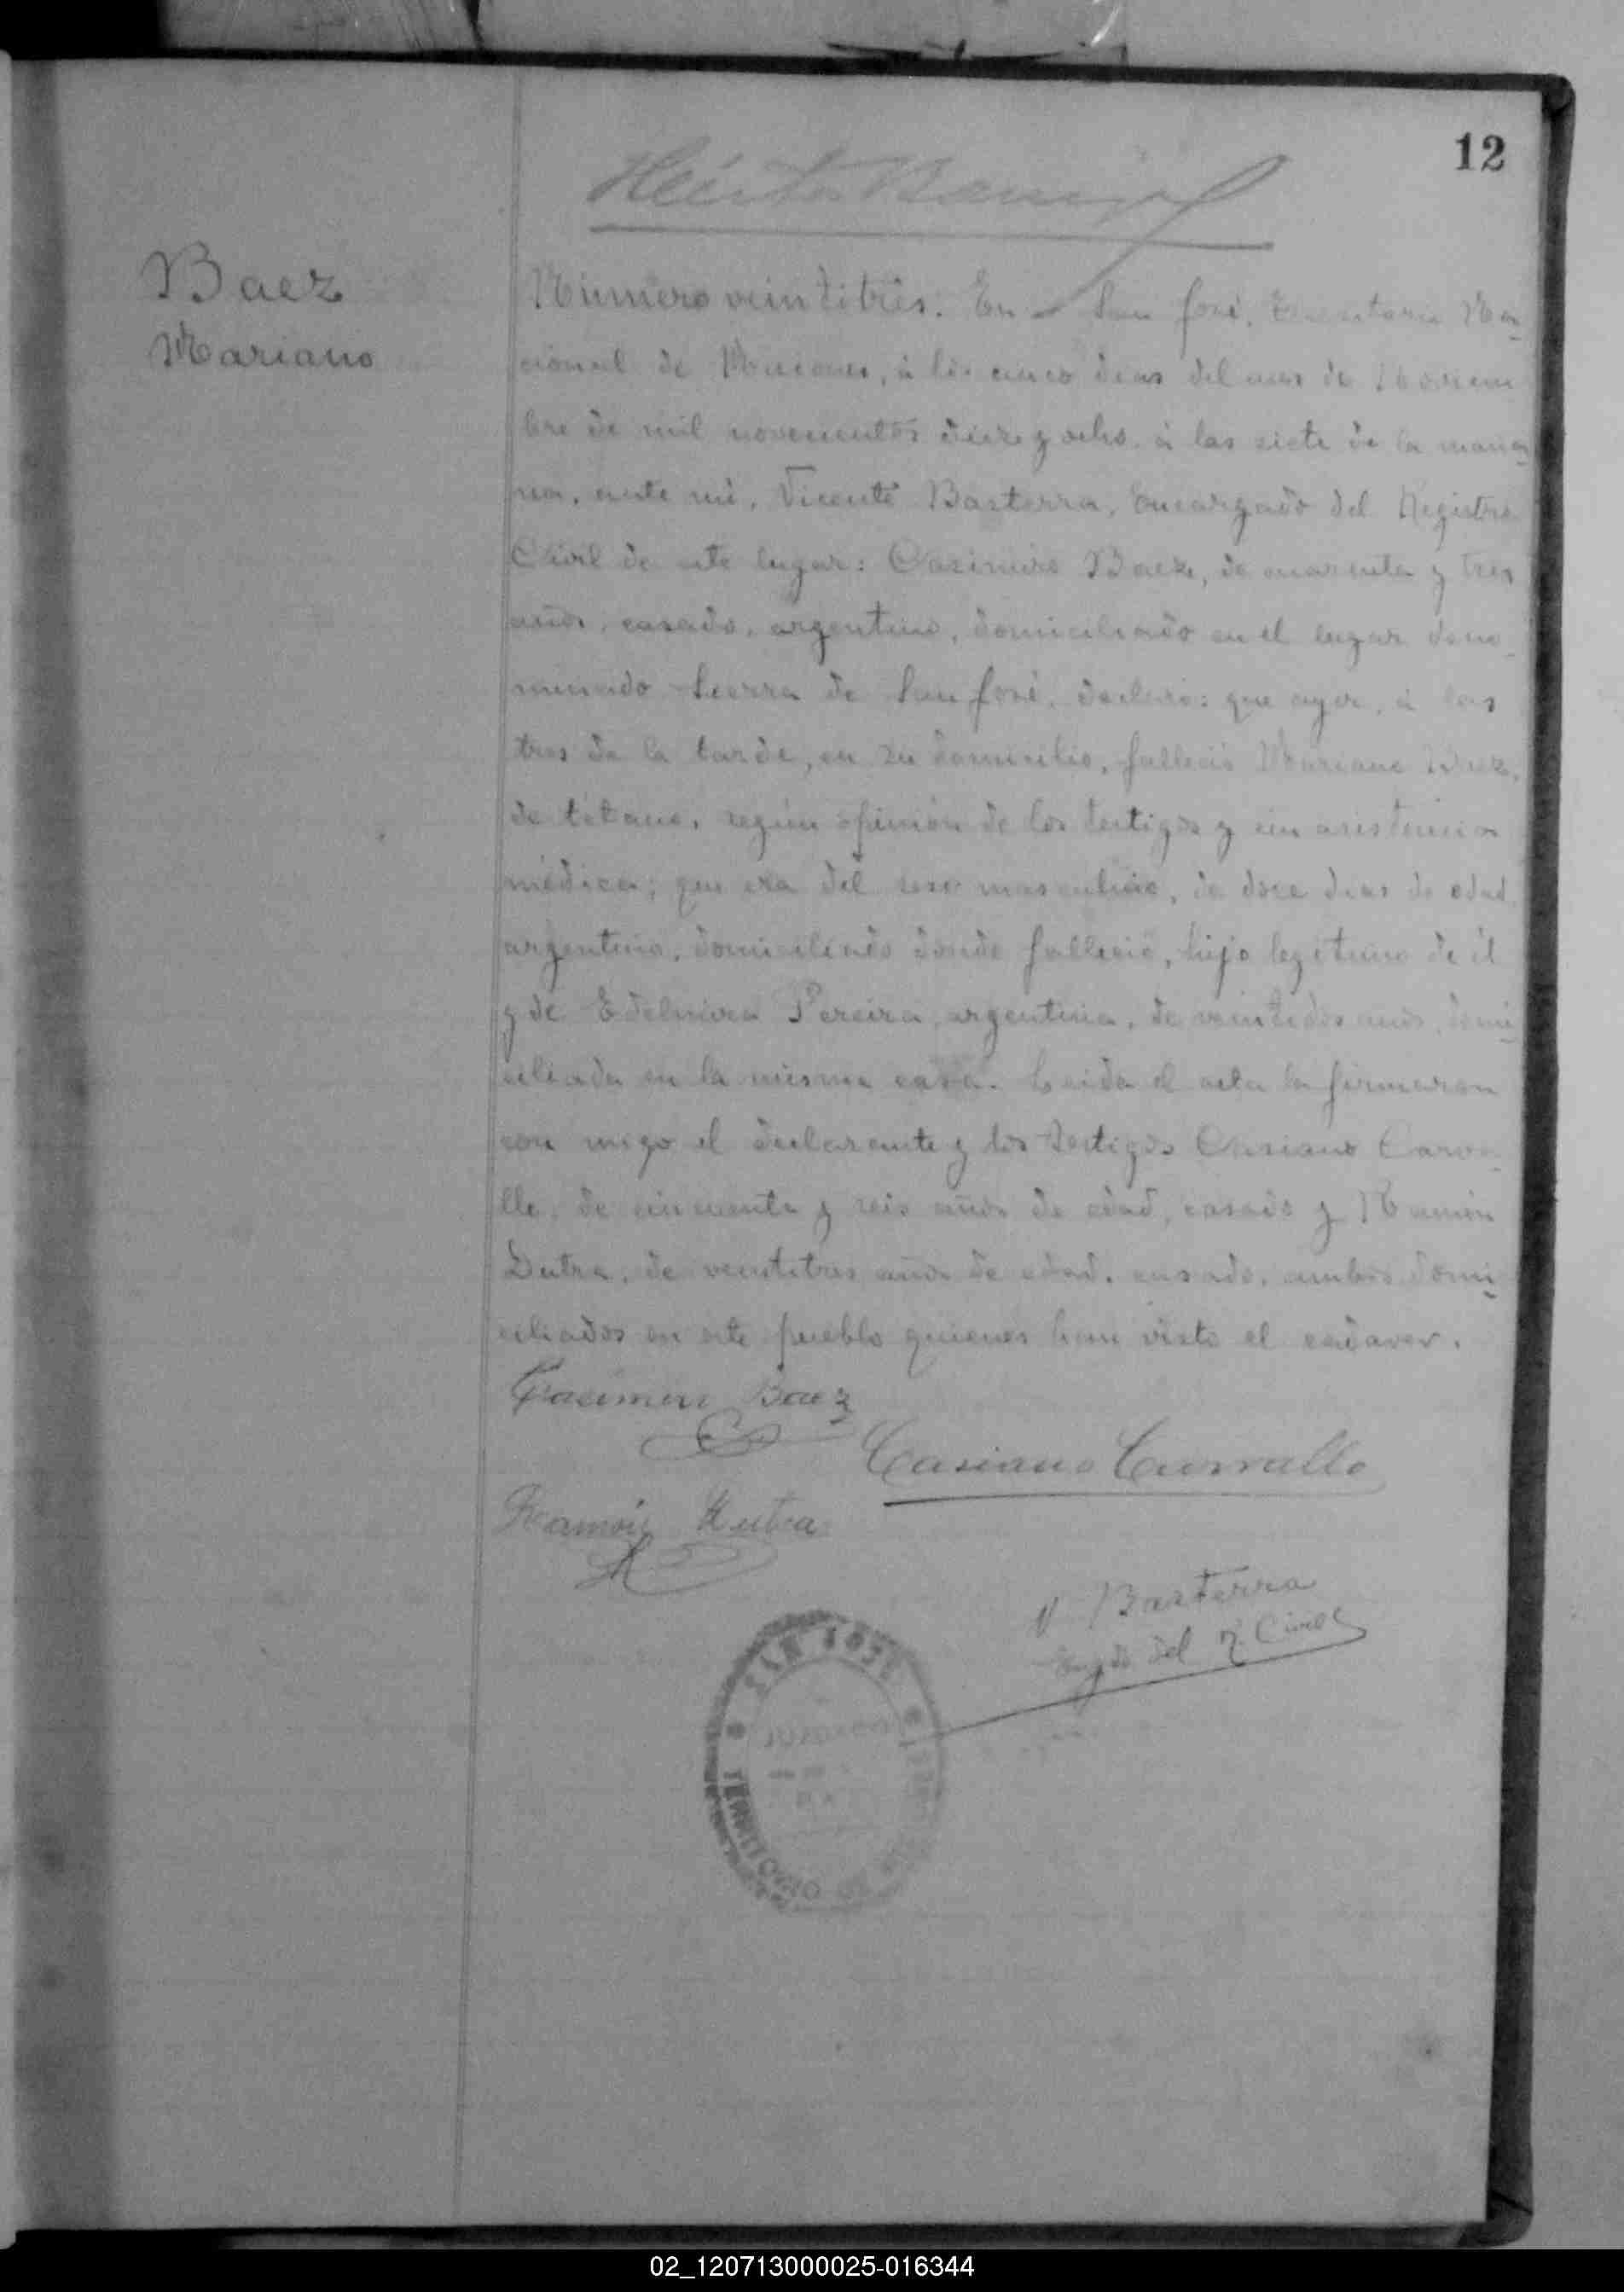 12
Héctor Barrios
Baez
Mariano
Número veintitrés. En San José, Territorio Na-
cional de Misiones, á los cinco dias del mes de Noviem
bre de mil novecientos diez y ocho á las siete de la maña-
na, ante mi, Vicente Basterra, Encargado del Registro
Civil de este lugar: Casimiro Baez, de cuarenta y tres
años, casado, argentino, domiciliado en el lugar deno-
minado Sierra de San José, declaró: que ayer, á las
tres de la tarde, en su domicilio, falleció Mariano Baez,
de tétano, según opinión de los testigos y sin asistencia
médica; que era del sexo masculino, de doce dias de edad
argentino, domiciliado donde falleció, hijo legítimo de él
y de Edelmira Pereira, argentina, de veintidos años, domi-
ciliada en la misma casa. Leida el acta la firmaron
con migo el declarante y los testigos Casiano Carva-
llo, de cincuenta y seis años de edad, casado y Ramón
Dutra, de veintitres años de edad, casado, ambos domi-
ciliados en este pueblo quienes han visto el cadaver.
Casimiro Baez
Casiano Carvallo
Ramón Dutra
V Basterra
Engdo del R. Civil
SAN JOSE
TERRITORIO DE
02_120713000025-016344